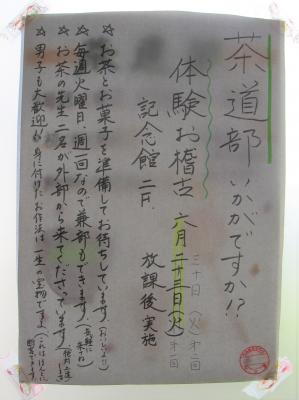 茶道部いかがですか!?
体験お稽古 六月二十三日(火)第一回
三十日(火)第二回
記念館二F. 放課後実施
☆お茶とお菓子を準備してお待ちしています(おいしいよ)
☆毎週火曜日、週一回なので兼部もできます(気軽に来てね)
☆お茶の先生二名が外部から来てくださっています
☆男子も大歓迎 身に付けたお作法は一生の宝物ですよ(これはほんとに